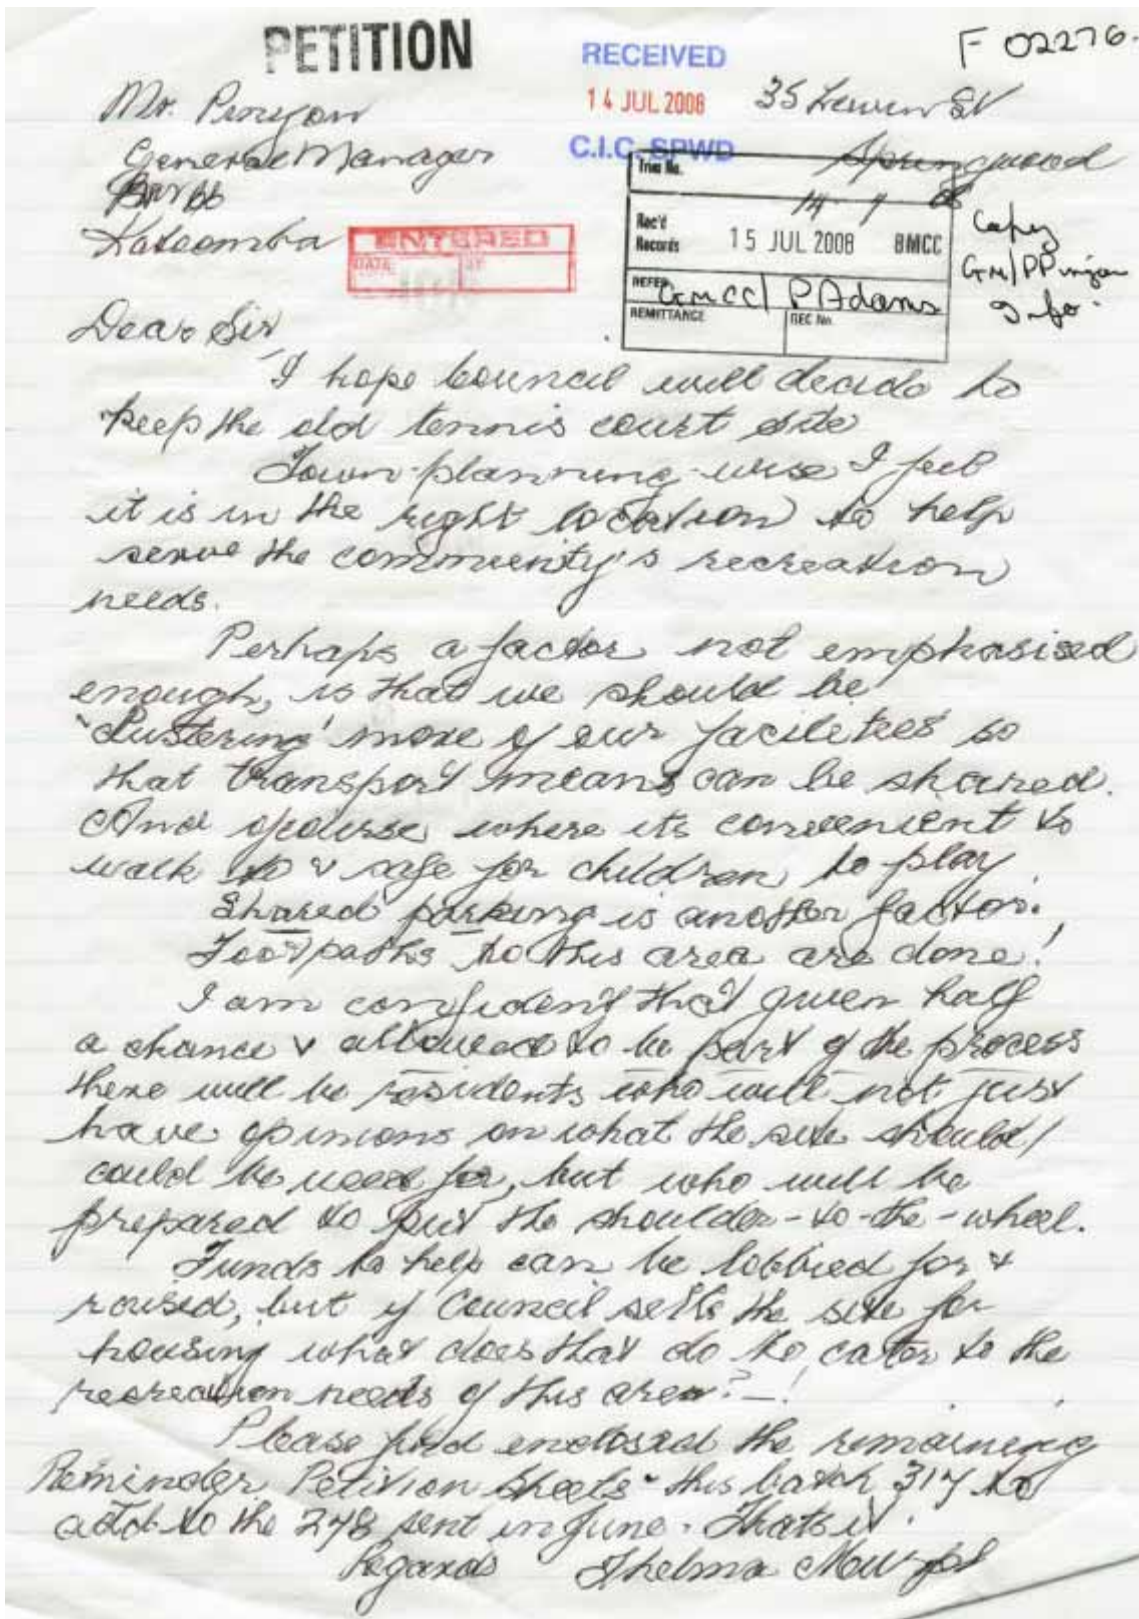 PETITION
RECEIVED
14 JUL 2008
C.I.C. SPWD
F 02276.
35 St
Springwood
14 7 08
Mr. Pinyon
General Manager
Katoomba
ENTERED
DATE BY
Trim No.
Rec'd
Records 15 JUL 2008 BMCC
REFER GMCC/ P Adams
REMITTANCE REC No.
Copy
GM/PPinyon
Info.
Dear Sir
I hope Council will decide to
keep the old tennis court site
Town-planning-wise I feel
it is in the right location to help
serve the community's recreation
needs.
Perhaps a factor not emphasised
enough, is that we should be
'clustering' more of our facilities so
that transport means can be shared.
And ofcourse where its convenient to
walk to & safe for children to play.
Shared parking is another factor.
Footpaths to this area are done!
I am confident that given half
a chance & allowed to be part of the process
there will be residents who will not just
have opinions on what the site should/
could be used for, but who will be
prepared to put the shoulder-to-the-wheel.
Funds to help can be lobbied for &
raised, but if Council sells the site for
housing what does that do to cater to the
recreation needs of this area? - !
Please find enclosed the remaining
Reminder Petition Sheets - this batch 317 to
add to the 248 sent in June. Thats it.
Regards Thelma